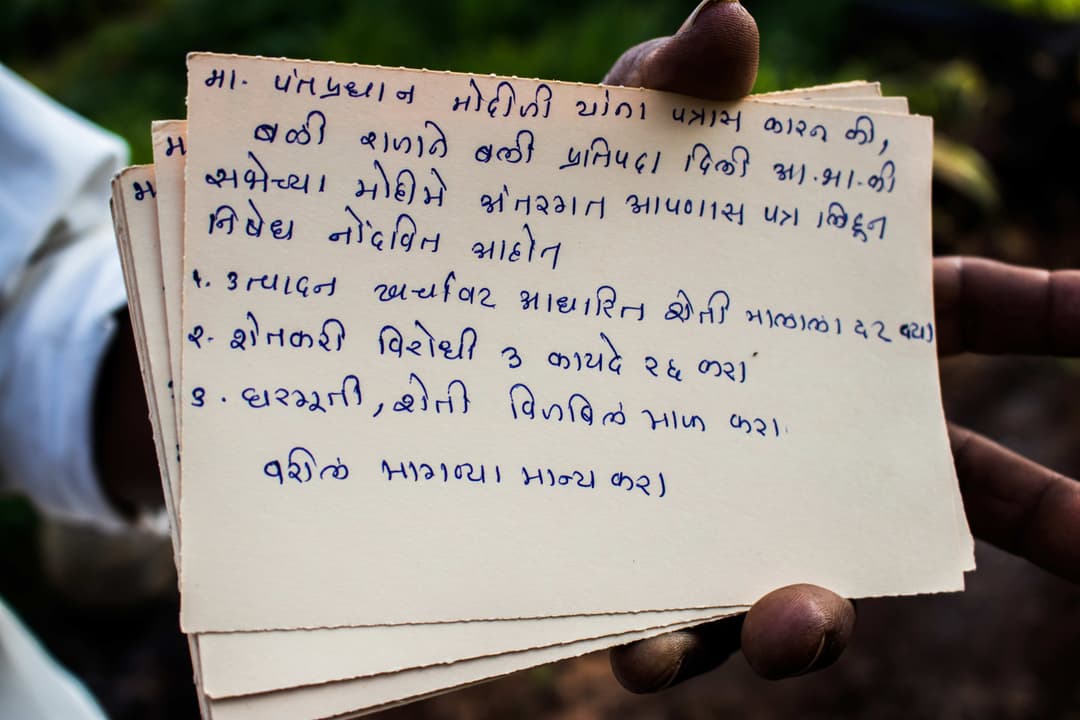 मा. पंतप्रधान मोदीजी यांना पत्रास कारन की,
बळी राजाने बली प्रतिपदा दिली आ.भा.की
सभेच्या मोहीमे अंतरगत आपणास पत्र लिहून
निषेध नोंदवित आहोत
१. उत्पादन खर्चावर आधारित शेती मालाला दर द्या
२. शेतकरी विरोधी ३ कायदे रद्द करा
३. घरगूती, शेती विजबिलं माफ करा
वरील मागण्या मान्य करा